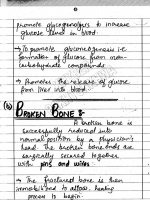 promote glycogenolysis to increase
glucose level in blood.
→ To promote gluconeogenesis i.e.
formation of glucose from non-
carbohydrate compounds
→ Promotes the release of glucose
from liver into blood.
(b) BROKEN BONE :-
A broken bone is
successfully reduced into
normal position by a physician's
hand. The broken bone ends are
surgically secured together
with pins and wires
→ The fractured bone is then
immobilized to allow healing
process to begin.